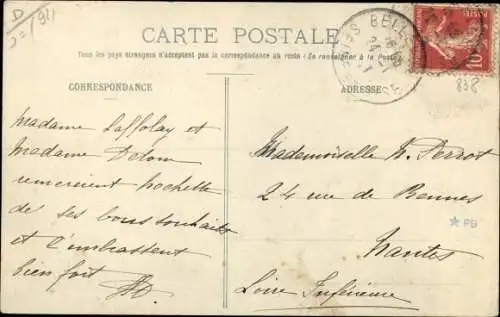 D
CARTE POSTALE
Tous les pays étrangers n'acceptent pas la correspondance au recto (Se renseigner à la Poste)
CORRESPONDANCE
ADRESSE
POSTES
10
838
Madame Laffolay et
Madame
remercient
de ses bons souhaits
et l'embrassent
bien fort
Mademoiselle Perrot
24 rue de Rennes
Nantes
Loire Inférieure
PB